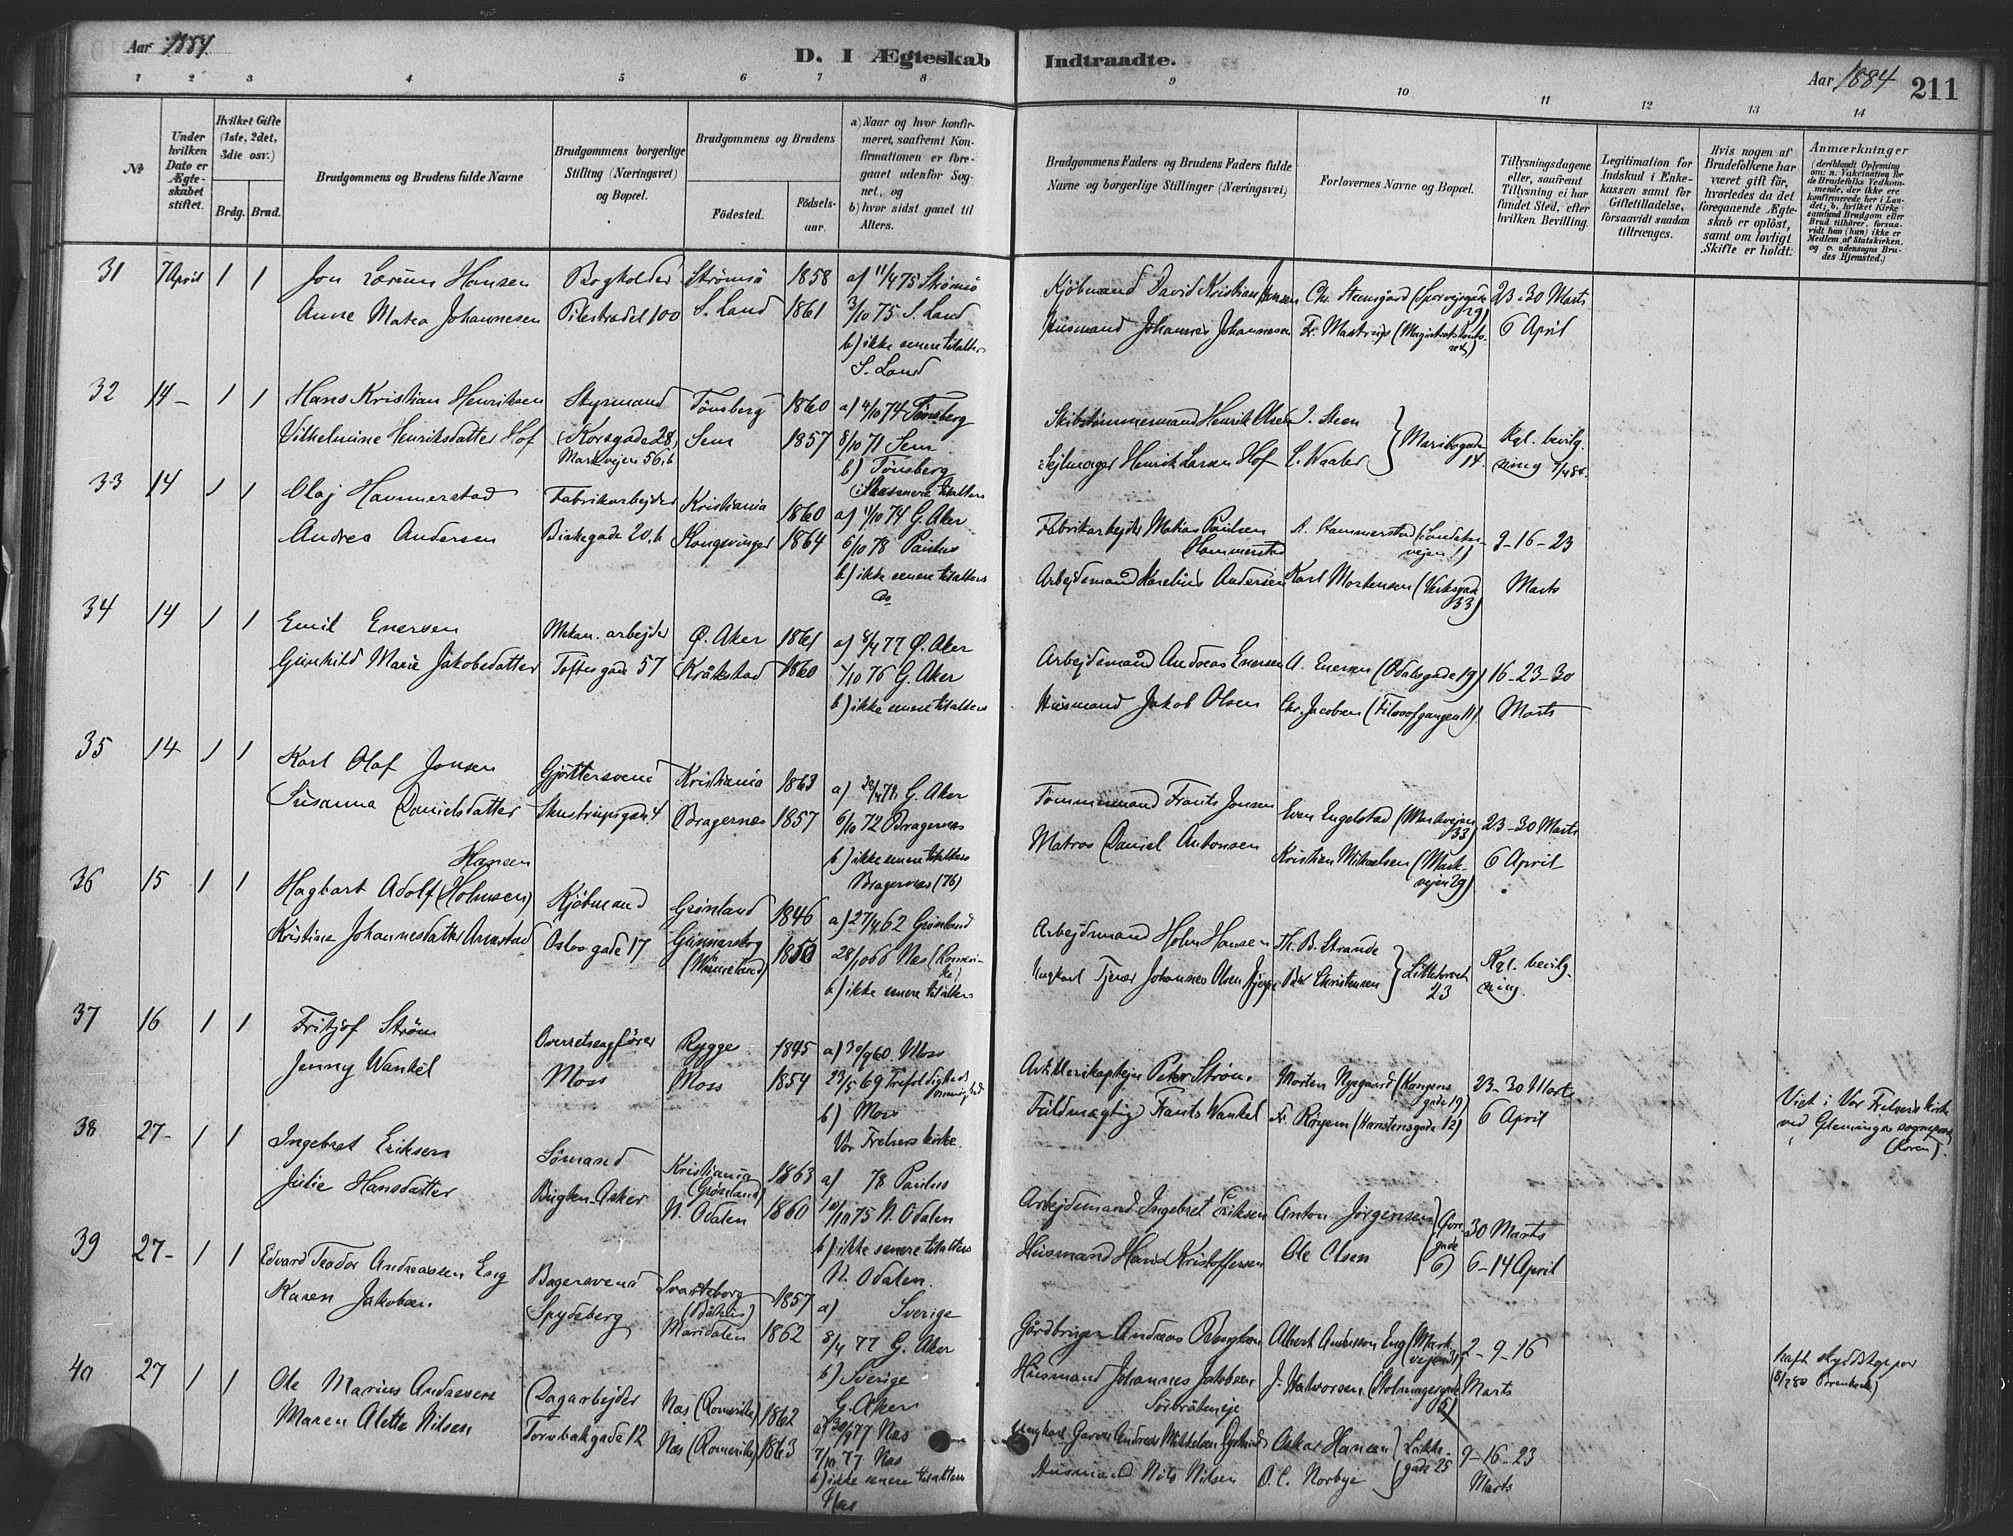 Aar 1884.
D. I Ægteskab Indtraadte.
Aar 1884 211
1 2 3 4 5 6 7 8 9 10 11 12 13 14
№
Under hvilken Dato er Ægteskabet stiftet.
Hvilket Gifte (1ste, 2det, 3die osv.)
Brdg. Brud.
Brudgommens og Brudens fulde Navne
Brudgommens borgerlige Stilling (Næringsvei) og Bopæl.
Brudgommens og Brudens
Fødested.
Fødselsaar.
a) Naar og hvor konfirmeret, saafremt Konfirmationen er foregaaet udenfor Sognet, og
b) hvor sidst gaaet til Alters.
Brudgommens Faders og Brudens Faders fulde Navne og borgerlige Stillinger (Næringsvei)
Forlovernes Navne og Bopæl.
Tillysningsdagene eller, saafremt Tillysning ei har fundet Sted, efter hvilken Bevilling.
Legitimation for Indskud i Enkekassen samt for Giftetilladelse, forsaavidt saadan tiltrænges.
Hvis nogen af Brudefolkene har været gift før, hvorledes da det foregaaende Ægteskab er opløst, samt om lovligt Skifte er holdt.
Anmærkninger
(deriblandt Oplysning om: a. Vakcination for de Brudefolks Vedkommende, der ikke ere konfirmerede her i Landet; b. hvilket Kirkesamfund Brudgom eller Brud tilhører, forsaavidt han (hun) ikke er Medlem af Statskirken, og c. udensogns Brudes Hjemsted.)
31 7 April 1 1 Jon Larsen Hansen Strömsö 1858 a) 11/4 75 Strömsö Kjöbmand David Kristian Jensen 23-30 Marts
Anne Matea Johannesen Pilestrædet 100 S. Land 1861 3/10 75 S. Land Husmand Johannes Johannesen 6 April
b) ikke senere til alters
S. Land
32 14 - 1 1 Hans Kristian Henriksen Styrmand Tönsberg 1860 a) 4/10 74 Tönsberg Skibstömmermand Henrik Olsen J. Steen Maribogade 14 Kgl. bevilgning
Vilhelmine Henriksdatter Hof Korsgade 28, Markvejen 56, b Sem 1857 8/10 71 Sem Sejlmager Henrik Larsen Hof C. Waaler
b) Tönsberg
33 14 1 1 Olaf Hammerstad Fabrikarbejder Kristiania 1860 a) 11/10 74 G. Aker Fabrikarbejder Matias Paulsen Hammerstad A. Hammerstad 9-16-23
Andrea Andersen Birkegade 20, b Kongsvinger 1864 6/10 78 Paulus Arbejdsmand Karelius Andersen Karl Mortensen (Verksgade 33) Marts
b) ikke senere til alters
do
34 14 1 1 Emil Enersen Mekan. arbejder Ø. Aker 1861 a) 8/4 77 Ø. Aker Arbejdsmand Andreas Enersen A. Enersen (Odalsgade 19) 16-23-30
Gunhild Marie Jakobsdatter Toftesgade 57 Kråkstad 1860 1/10 76 G. Aker Husmand Jakob Olsen Chr. Jacobsen (Filosofgangen 11) Marts
b) ikke senere til alters
35 14 1 1 Karl Olaf Jonsen Gjörtlersvend Kristiania 1863 G. Aker Tömmermand Frants Jonsen Even Engelstad (Markvejen 33) 23-30 Marts
Susanna Danielsdatter 1857 6/10 72 Bragernæs Matros Daniel Antonsen Kristian Mikaelsen (Markvejen 29) 6 April
Bragernæs
b) ikke senere til alters
Bragernæs (76)
36 15 1 1 Hagbart Adolf Hansen (Holmsen) Kjöbmand Grönland 1846 a) 27/4 62 Grönland Arbejdsmand Holm Hansen Th. B. Strande Lilletorvet 23 Kgl. bevilgning.
Kristine Johannesdatter Oslogade 17 Gunnarskog (Wärmeland) 1850 28/10 66 Næs (Romerike) Ungkarl Tjener Johannes Olsen Christensen
b) ikke senere til alters
37 16 1 1 Fritjof Ström Overretssagförer Rygge 1845 a) 30/9 60 Moss Artillerikaptejn Peter Ström Morten Nygaard (Kongensgade 19) 23-30 Marts Viet i Vor Frelsers kirke
Jenny Wankel Moss Moss 1854 23/5 69 Trefoldigheds menighed Fuldmægtig Frants Wankel Fr. Röyem 6 April ved Glemminges sognepræst
b) Moss
Vor Frelsers kirke.
38 27 - 1 1 Ingebret Eriksen Sömand Kristiania (Grönland) 1863 a) 78 Paulus Arbejdsmand Ingebret Eriksen Anton Jörgensen 30 Marts
Julie Hansdatter Bugten-Asker N. Odalen 1860 10/10 75 N. Odalen Husmand Hans Kristoffersen Ole Olsen 6-14 April
b) ikke senere til alters
N. Odalen.
39 27 - 1 1 Edvard Teodor Andreassen Eng Bagersvend Svarteborg 1857 a) Sverige Gårdbruger Andreas Bengtsen Albert Andersson Eng 2-9-16
Karen Jakobsen Spydeberg Maridalen 1862 8/4 77 G. Aker Husmand Johannes Jakobsen Sörbråteneje J. Halvorsen Marts
b) Sverige
G. Aker
40 27 1 1 Ole Marius Andresen Dagarbejder Næs (Romerike) 1862 a) 30/9 77 Næs Andreas Mikkelsen Oskar Hansen Lakkegade 25 9-16-23
Maren Alette Nilsen Torvbakgade 12 Næs (Romerike) 1863 7/10 77 Næs Husmand Nils Nilsen O. C. Norbye Marts
b) ikke senere til alters
Næs